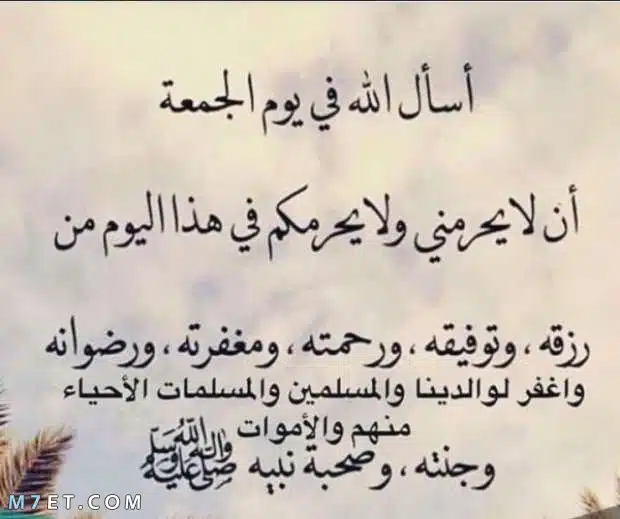 أسأل الله في يوم الجمعة
أن لا يحرمني ولا يحرمكم في هذا اليوم من
رزقه، وتوفيقه، ورحمته، ومغفرته، ورضوانه
واغفر لوالدينا والمسلمين والمسلمات الأحياء
منهم والأموات
وجنته، وصحبة نبيه ﷺ
M7ET.COM